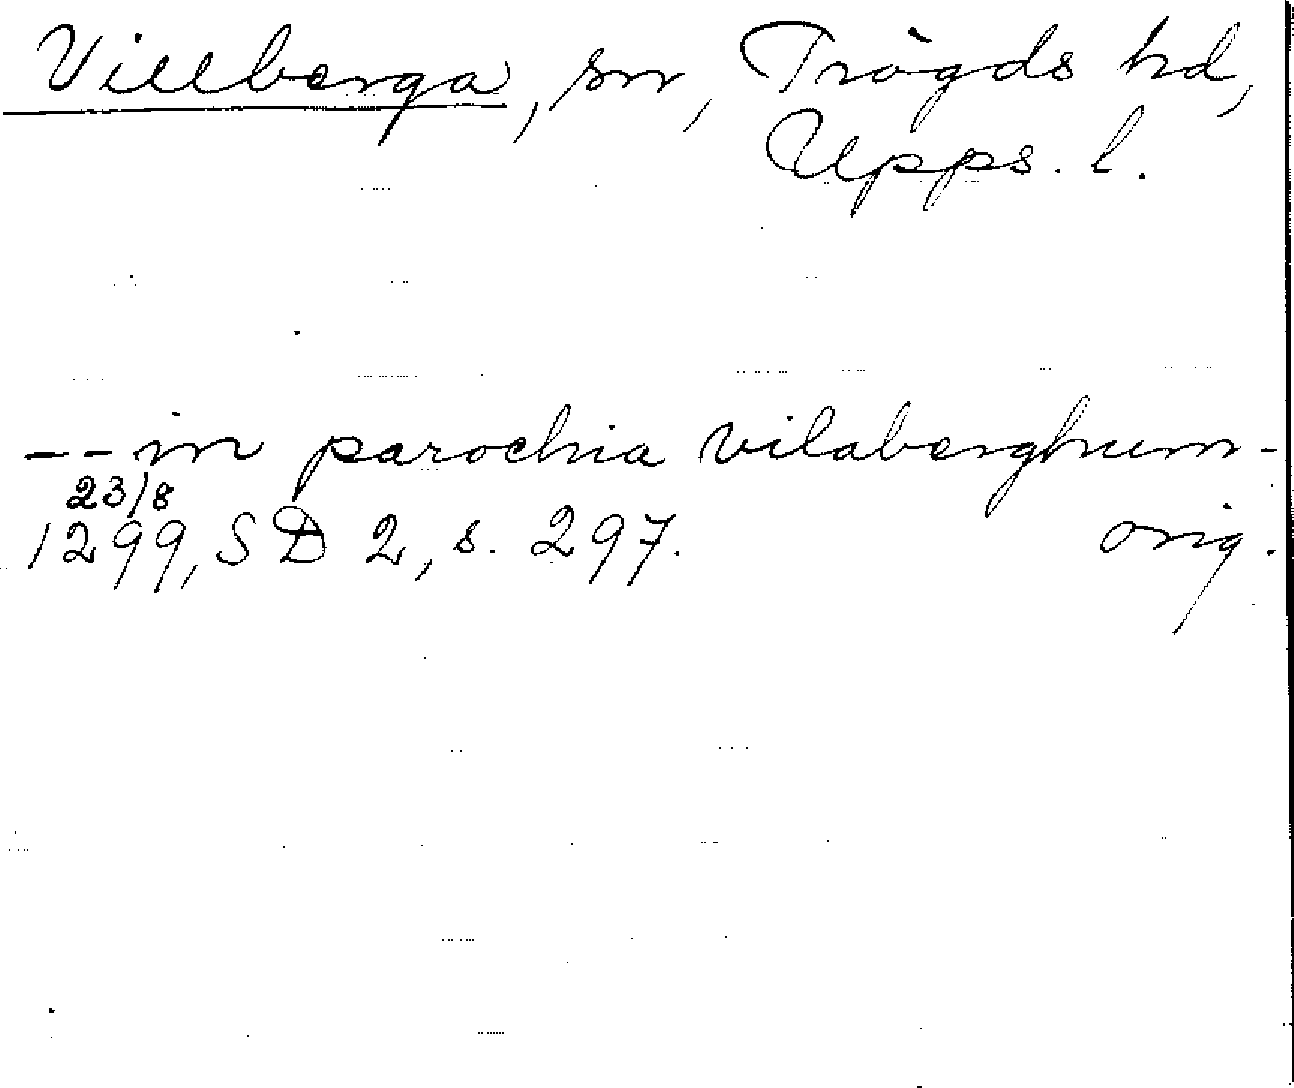 Villberga, sn, Trögds hd,
Upps. l.
-- in parochia vilaberghum -
23/8
1299, SD 2, s. 297. orig.